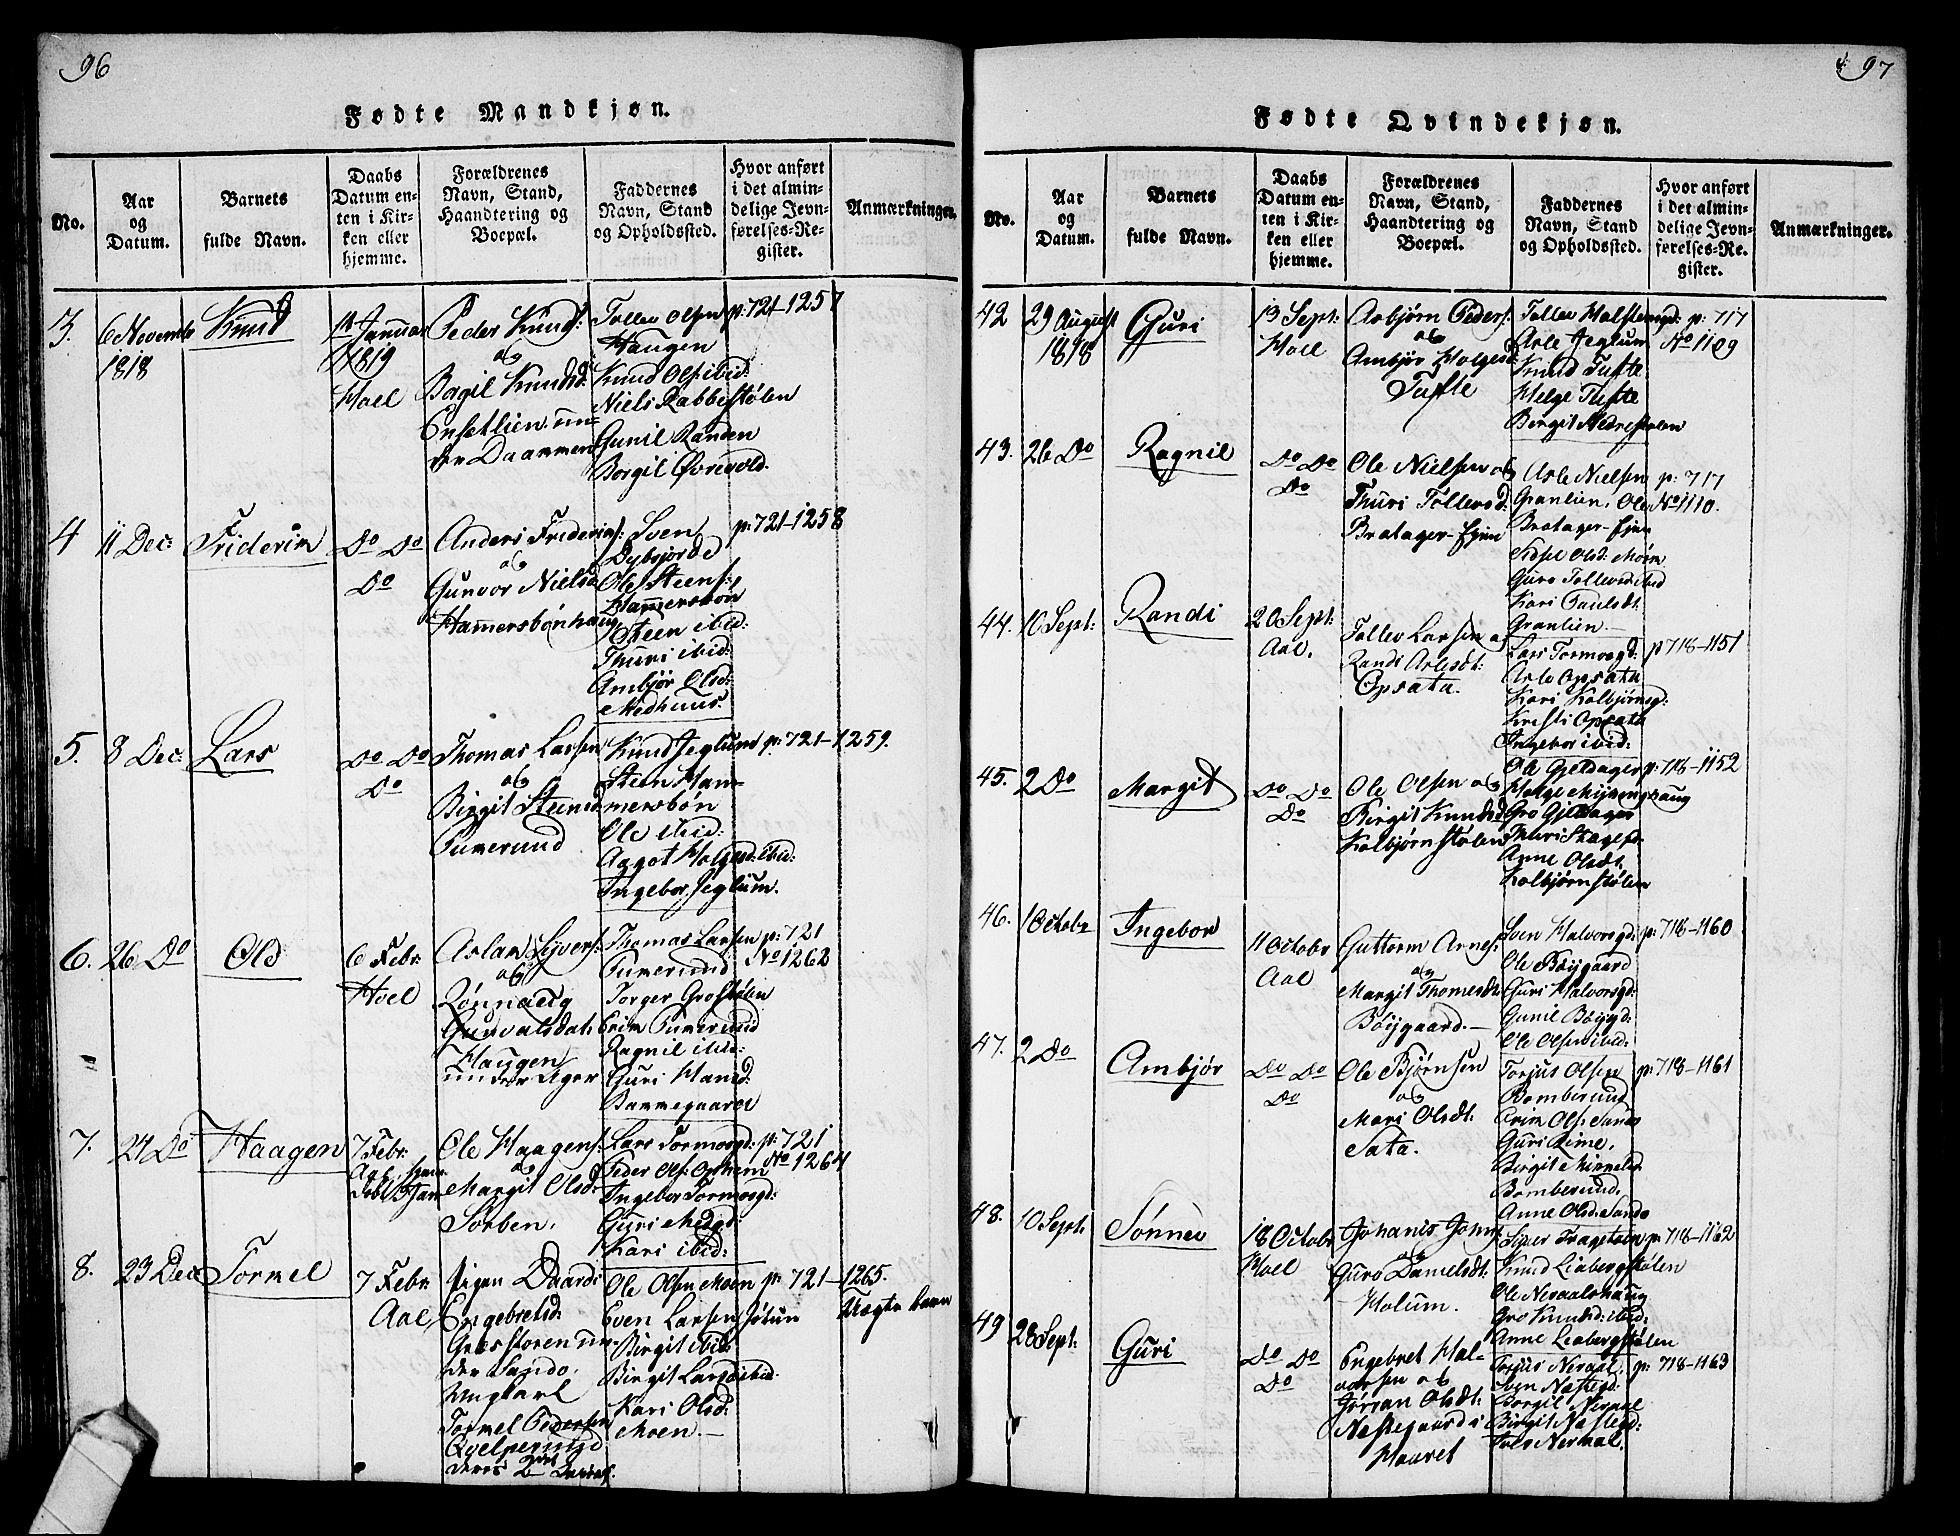 96
Fødte Mandkjøn.
No.
Aar og Datum.
Barnets fulde Navn.
Daabs Datum enten i Kirken eller hjemme.
Forældrenes Navn, Stand, Haandtering og Boepæl.
Faddernes Navn, Stand og Opholdssted.
Hvor anført i det almindelige Jevnførelses-Register.
Anmærkninger.
3.
6 Novemb
1818
Knud
1ste Januar
1819
Hoel
Peder Knuds:
og
Birgit Knudsd:
Ensetlien un-
der Daammen
Tollev Olsen
Haugen
Knud Ols: ibid:
Niels Rabbestølen
Gunil Randen
Borgil Øvrevold.
p: 721-1257
4
11 Dec:
Friderim
Do Do
Do
Anders Friderims:
og
Gunvor Nielsd
Hamersbønhaug
Sven
Dybsjord
Ole Steens:
Hamersbøn
Steen ibid:
Thuri ibid:
Ambjør Olsd:
Medhuus.
p: 721-1258
5.
8 Dec:
Lars
Do Do
Do
Thomas Larsen
og
Birgit Steensd
Tumerund
Knud Jeglum
Steen Ham-
mersbøn
Ole ibid:
Aagot Holgesd: ibid:
Ingebor Jeglum.
p: 721-1259.
6.
26 Do
Ole
6 Febr:
Hoel
Aslak Syvers:
og
Rønnaug
Gunvalsdat:
Haugen
under Ager
Thomas Larsen
Tumerund
Torger Grostølen
Erim Tumerund
Ragnil ibid:
Guri Hansd:
Bammegaarde
p: 721
No 1262
7.
27 Do
Haagen
7 Febr:
Aal
Ole Haagens:
og
Margit Olsd:
Sorben.
Lars Tormosgd:
Peder Ols: Opheim
Ingebor Tormosgd:
Guri Medgd:
Kari ibid:
p: 721
No 1264
8.
23 Dec:
Tormel
7 Febr:
Aal
Pigen Daardi
Engebretsd:
Græsstoren un-
der Sando,
Ungkarl
Tormel Pedersen
Qvelprud
Ole Olsen Moen
Even Larsen Jøtun
Birgit ibid:
Birgit Larsd: ibid:
Kari Olsd:
Moen.
p: 721-1265.
Uægte barn
97
Fødte Qvindekjøn.
No.
Aar og Datum.
Barnets fulde Navn.
Daabs Datum enten i Kirken eller hjemme.
Forældrenes Navn, Stand, Haandtering og Boepæl.
Faddernes Navn, Stand og Opholdssted.
Hvor anført i det almindelige Jevnførelses-Register.
Anmærkninger.
42
29 August
1818
Guri
13 Sept:
Hoel
Asbjørn Peders:
og
Ambjør Holgesd
Tufte
Tollev Halstensgd:
Asle Jeglum
Knud Tufte
Helge Tufte
Birgit Nedrestølen
p: 717
No 1109
43.
26 Do
Ragnil
Do Do
Do
Ole Nielsen og
Thuri Tollevsd:
Bratager-Ejen
Asle Nielsen
Granlien, Ole
Bratager-Ejen
Sidsel Olsd: Moen
Guro Tollevsd: ibid
Kari Paulsdt:
Granlien
p: 717
No 1110.
44.
10 Sept:
Randi
20 Sept:
Aal.
Tollev Larsen og
Randi Arlesdt:
Opsata.
Lars Tormosgd:
Asle Opsata
Kari Kolbjørnsgd:
Kristi Opsata
Ingebor ibid:
p 718-1151
45.
2 Do
Margit
Do Do
Do
Ole Olsen og
Birgit Knudsd
Kolbjørnstølen
Ole Gjeldager
Helge Mijdengshaug
Gro Gjeldager
Thuri Skagesd:
Anne Olsdt:
Kolbjørnstølen
p: 718-1152
46.
1 Octobr
Ingebor
11 Octobr
Aal
Guttorm Arnes:
og
Margit Thomesdt:
Bøygaard.
Sven Halvorsgd:
Ole Bøygaard
Guri Halvorsgd:
Gunil Bøygd:
Ole Olsen ibid:
p: 718-1160
47.
2 Do
Ambjør
Do Do
Do
Ole Bjørnsen
og
Mari Olsdt:
Sata.
Torjus Olsen
Bomberud
Erim Ols: Sando
Guri Rime,
Birgit Mikkelsd
Bomberund.
Anne Olsd: Sando
p: 718-1161
48.
10 Sept:
Sønnev
18 Octobr
Hoel
Johanis Johns:
og
Guro Danielsdt:
Holum.
Siver Tragetøen
Knud Liabergstølen
Ole Neraalshaug
Gro Knudsd: ibid:
Anne Liabergstølen
p: 718-1162
49
28 Sept:
Guri
Do Do
Do
Engebret Hal-
vorsen og
Jørran Olsdt:
Nestegaard i
Hovet
Torjus Neraal,
Sven Nestegd:
Borgil Neraal
Birgit Nestegd:
Tolv Neraal.
p: 718-1163